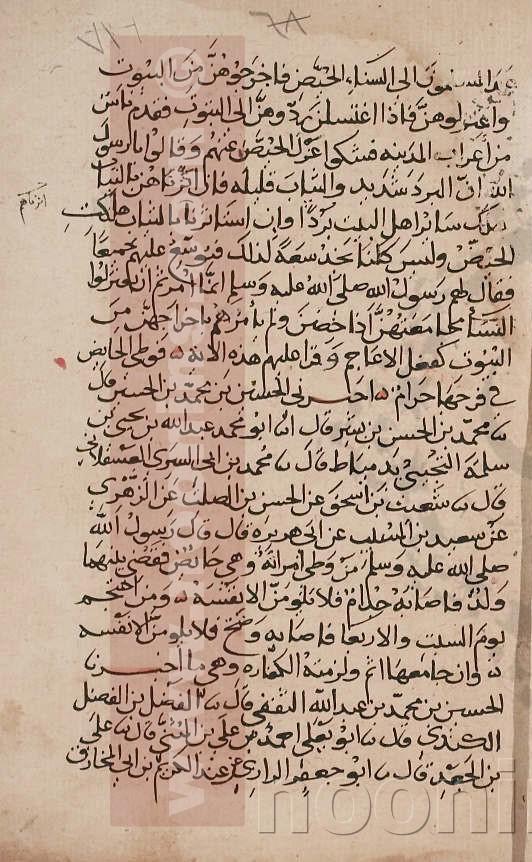 ٧٨
٧١٦
عمد المسلمون الى النساء الحيض فاخرجوهن من البيوت
واعتزلوهن فاذا اغتسلن ردوهن الى البيوت فقدم ناس
من اعراب المدينه فشكوا عزل الحيض عنهم وقالوا يا رسول
الله ان البرد شديد والثياب قليله فان اثرناهن بالثياب
هلك سائر اهل البيت بردا وان استاثرنا بالثياب هلكت
اثرناهم
الحيض وليس كلنا يجد سعة لذلك فيوسع عليهم جميعا
فقال لهم رسول الله صلى الله عليه وسلم انما امرتم ان تعتزلوا
النسا مجامعتهن اذا حضن ولم يامركم باخراجهن من
البيوت كفعل الاعاجم وقرا عليهم هذه الاية فوطى الحايض
في فرجها حرام اخبرني الحسين بن محمد بن الحسين قال
محمد بن الحسن بن بشر قال ابو محمد عبد الله بن يحيى بن
سلمة التجيبي بدمياط قال محمد بن ابي السري العسقلاني
قال شعيب بن اسحق عن الحسن بن الصلت عن الزهري
عن سعيد بن المسيب عن ابي هريره قال قال رسول الله
صلى الله عليه وسلم من وطى امراته وهي حائض فقضي بينهما
ولد فاصابه جذام فلا يلومن الا نفسه ومن احتجم
يوم السبت والاربعا فاصابه وضح فلا يلومن الا نفسه
وان جامعها اثم ولزمته الكفاره وهي ما اخبرنا
الحسين بن محمد بن عبد الله الثقفي قال الفضل بن الفضل
الكندي قال ابو يعلى احمد بن علي بن المثنى قال علي
بن الجعد قال ابو جعفر الرازي عن عبد الكريم بن ابي المخارق
nooni